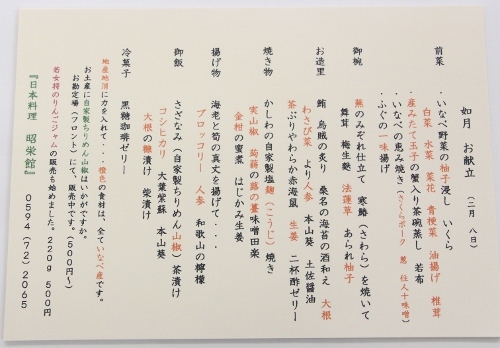 如月 お献立 (二月 八日)
前菜
・いなべ野菜の柚子浸し いくら
白菜 水菜 菜花 青梗菜 油揚げ 椎茸
・産みたて玉子の蟹入り茶碗蒸し 若布
・いなべの恵み焼き(さくらポーク 葱 仕入十味噌)
・ふぐの一味揚げ
御椀
蕪のみぞれ仕立て 寒鰆(さわら)を焼いて
舞茸 梅生麩 法蓮草 あられ柚子
お造里
鮪 烏賊の炙り 桑名の海苔の酒和え 大根
わさび菜 より人参 本山葵 土佐醤油
茶ぶりやわらか赤海鼠 生姜 二杯酢ゼリー
焼き物
かしわの自家製塩麹(こうじ)焼き
実山椒 蒟蒻の蕗の薹味噌田楽
金柑の蜜煮 はじかみ生姜
揚げ物
海老と筍の真丈を揚げて・・・
ブロッコリー 人参 和歌山の檸檬
御飯
さざなみ(自家製ちりめん山椒)茶漬け
コシヒカリ 大葉紫蘇 本山葵
大根の糠漬け 柴漬け
冷菓子
黒糖珈琲ゼリー
地産地消に力を入れて・・橙色の食材は、全ていなべ産です。
お土産に自家製ちりめん山椒はいかがですか。
お勘定場(フロント)にて、販売中です。(600円〜)
若女将のりんごジャムの販売も始めました。220g 500円
『日本料理 昭栄館』 0594(72)2065